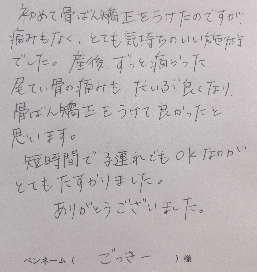 初めて骨ばん矯正をうけたのですが
痛みもなく、とても気持ちのいい施術
でした。産後、ずっと痛かった
尾てい骨の痛みも、だいぶ良くなり、
骨ばん矯正をうけて良かったと
思います。
短時間で子連れでもOKなのが
とてもたすかりました。
ありがとうございました。
ペンネーム（ ごっきー ）様